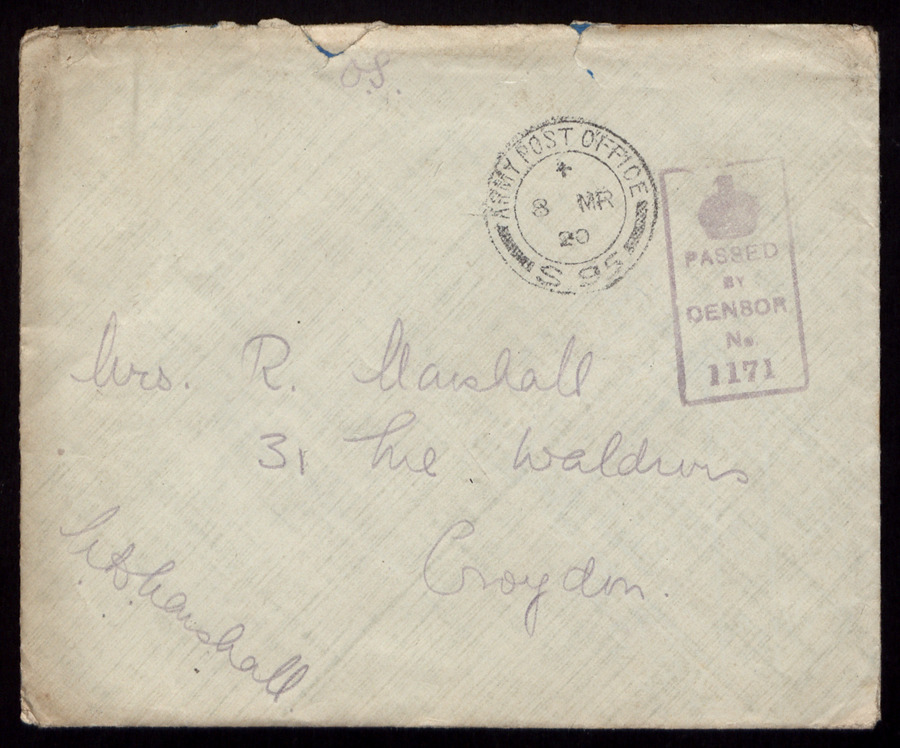 O.S.
ARMY POST OFFICE
*
8 MR
20
S 95
PASSED
BY
CENSOR
No
1171
Mrs. R. Marshall
31 The Waldrons
Croydon.
Marshall